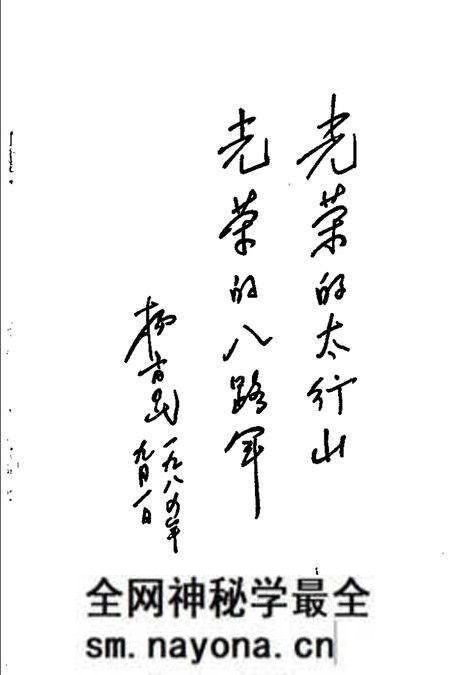 光荣的太行山
光荣的八路军
杨
一九八四年
九月一日
全网神秘学最全
sm.nayona.cn